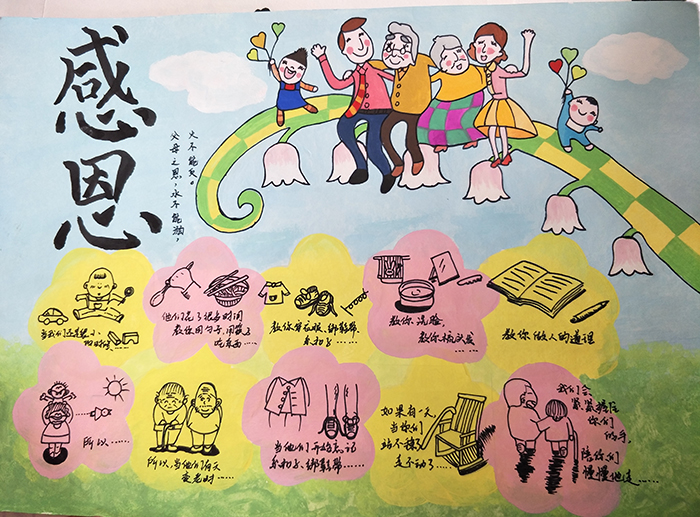 感恩
父母之恩，水不能溺，
火不能灭。
当我们还是很小
的时候……
他们花了很多时间
教你用勺子、用筷子
吃东西……
教你穿衣服、绑鞋带、
系扣子……
教你洗脸，
教你梳头发
……
教你做人的道理
所以……
所以，当他们有天
变老时……
当他们开始忘记
系扣子、绑鞋带……
如果有一天，
当你们
站不稳，
走不动了……
我们会
紧紧握住
你们
的手，
陪你们
慢慢地走……